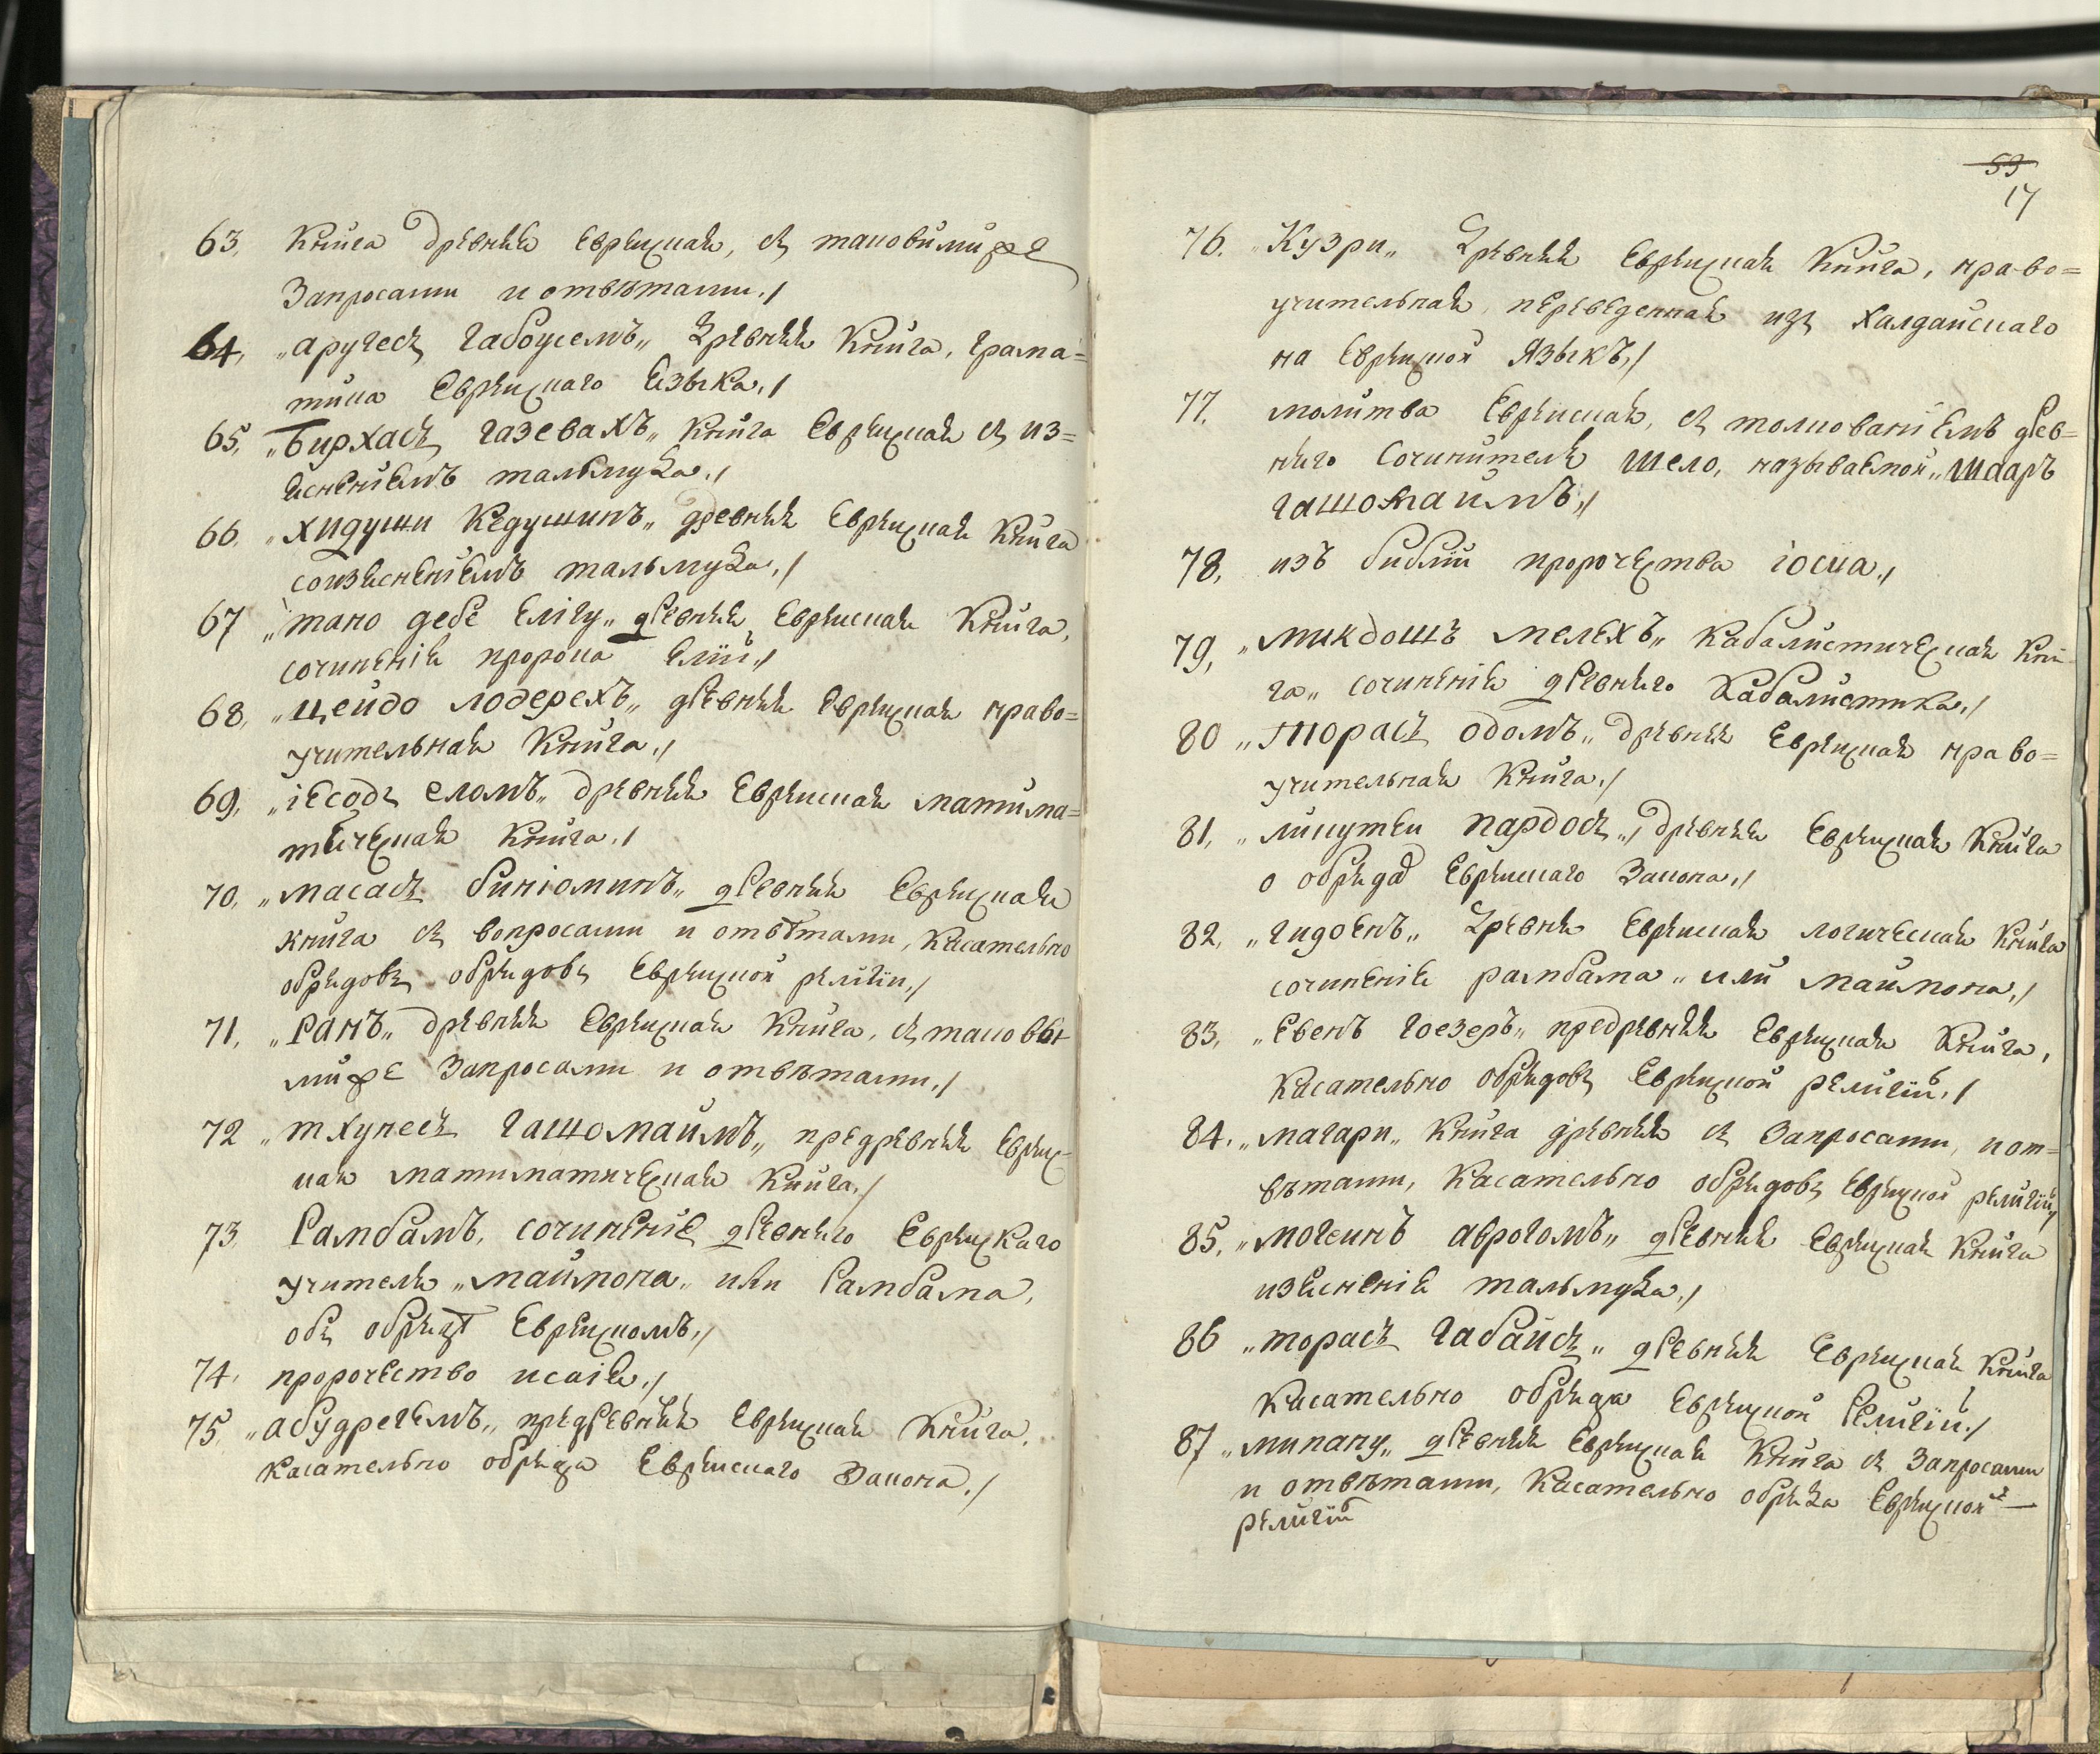 63. Книга древняя Еврейская, съ таковимиже
Запросами и ответами./
64. „аругесъ габоусемъ„ Древняя Книга, грама=
тика Еврейскаго Языка./
65. „Бирхасъ газевахъ„ Книга Еврейская съ из=
яснениемъ тальмуда./
66. „хидуши Кедушинъ„ древняя Еврейская Книга
соизяснениемъ тальмуда./
67 „тано дебе Елiгу„ древняя Еврейская Книга,
сочинение пророка Елiи./
68. „цейдо лодерехъ„ древняя Еврейская нраво=
учительная Книга./
69. „iесодъ еломъ„ древняя Еврейская матима=
тическая Книга./
70. „масасъ бинiоминъ„ древняя Еврейская
книга съ вопросами и ответами, касательно
обрядовъ обрядовъ Еврейской религiи./
71. „Ранъ„ древняя Еврейская Книга, съ таковы
миже Запросами и ответами./
72 „тхунесъ гашомаимъ„ предревняя Еврейс=
кая матиматическая Книга./
73. Рамбамъ, сочинение древняго Еврейскаго
учителя „маймона„ или Рамбама,
объ обряде Еврейскомъ./
74. пророчество исаiя./
75. „абудрегемъ„ предревняя Еврейская Книга,
касательно обряда Еврейскаго Закона./
53
17
76. „Кузри„ Древняя Еврейская Книга, нраво=
учительная, переведенная изъ Халдайскаго
на Еврейской Языкъ./
77. молитва Еврейская, съ толкованiемъ древ=
няго Сочинителя шело, называемой „шааръ
гашомаимъ./
78. изъ библiи пророчества iосиа./
79. „микдошъ мелехъ„ Кабалистическая Кни
га„ сочинение древняго Кабалистика./
80 „торасъ одомъ„ древняя Еврейская нраво=
учительная Книга./
81. „ликутеи пардосъ„ древняя Еврейская Книга
о обряде Еврейскаго Закона./
82. „гидоенъ„ Древня Еврейская логическая Книга
сочинение рамбама„ или маймона./
83. „Евенъ гоезеръ„ предревняя Еврейская Книга,
касательно обрядовъ Еврейской религiи./
84. „магари„ Книга древняя съ Запросами, и от=
ветами, касательно обрядовъ Еврейской религiи./
85. „могеинъ аврогомъ„ древняя Еврейская Книга
изяснение тальмуда./
86 „торасъ габаисъ„ древняя Еврейская Книга
касательно обряда Еврейской Религiи./
87 „минану„ древняя Еврейская Книга съ Запросами
и ответами, касательно обряда Еврейской
религiи